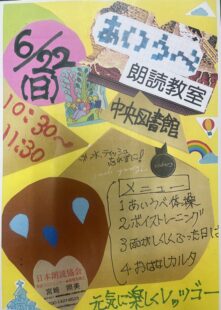 6/22
(日)
10:30〜
11:30
あいうべ
朗読教室
中央図書館
メニュー
1.あいうべ体操
2.ボイストレーニング
4.おはなしカルタ
日本朗読協会
元気に楽しくレッツゴー